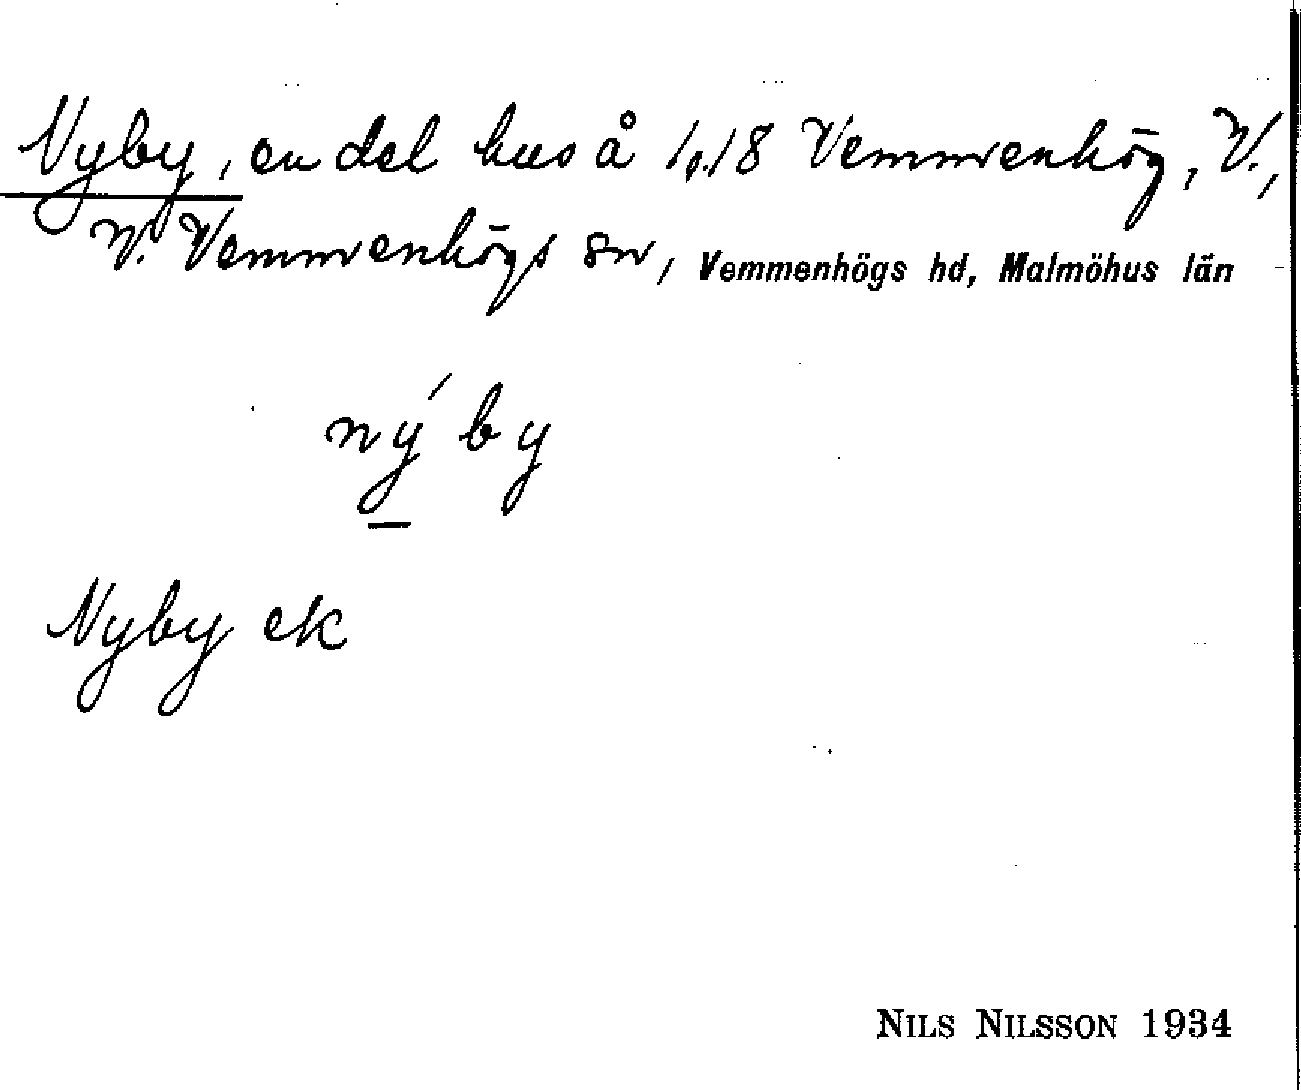 Nyby, en del hus å 1, 18 Vemmenhög, V.,
V. Vemmenhögs sn, Vemmenhögs hd, Malmöhus län
ný by
Nyby ek
NILS NILSSON 1934